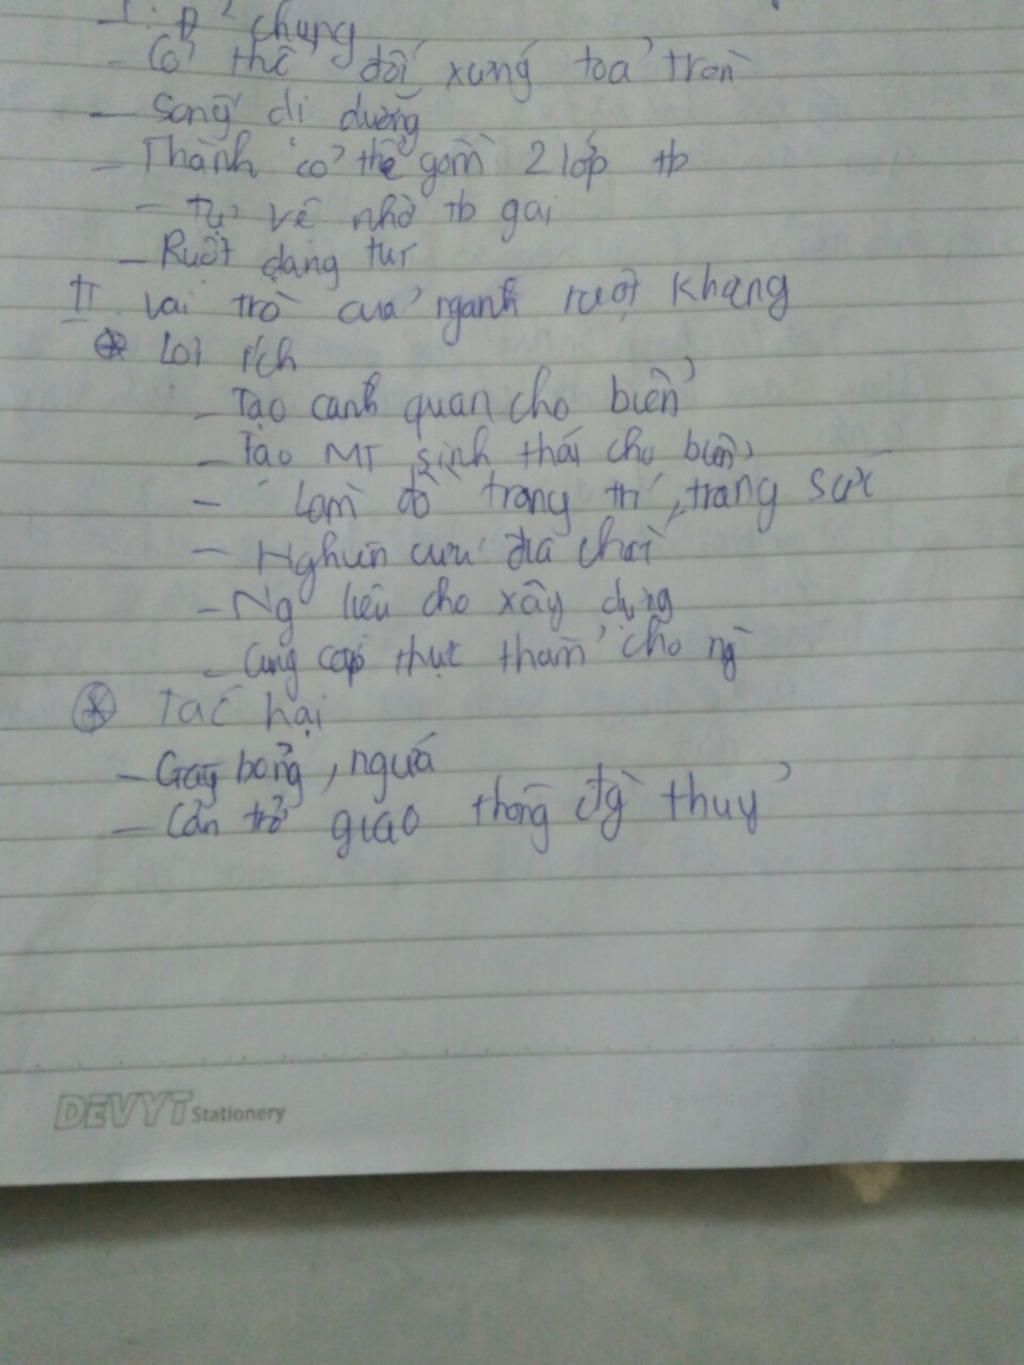 I. Đ² chung
- Cơ thể đối xứng toả tròn
- Sống dị dưỡng
- Thành cơ thể gồm 2 lớp tb
- Tự vệ nhờ tb gai
- Ruột dạng túi
II vai trò của ngành ruột khoang
* Lợi ích
- Tạo cảnh quan cho biển
- Tạo MT sinh thái cho biển
- Làm đồ trang trí, trang sức
- Nghiên cứu địa chất
- Ng liệu cho xây dựng
- Cung cấp thực thẩm cho ng
* Tác hại
- Gây bỏng, ngứa
- Cản trở giao thông đg thuỷ
DEVYT Stationery